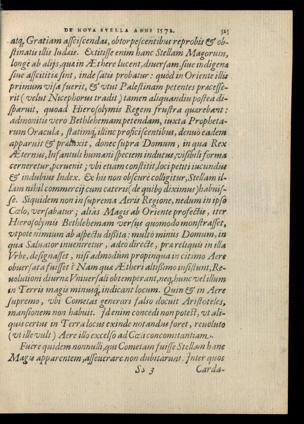 DE NOVA STELLA ANNI 1572. 325
atq, Gratiam asciscendas, obtorpescentibus reprobis & ob-
stinatis illis Iudæis. Extitisse enim hanc Stellam Magorum,
longè ab alijs, qua in Æthere lucent, diuersam, siue indigena
siue ascititia sint, inde satis probatur: quòd in Oriente illis
primùm visa fuerit, & vbi Palestinam petentes præcesse-
rit (velut Nicephorus tradit) tamen aliquandiu postea di-
sparuit, quoad Hierosolymis Regem frustra quærebant:
admonitis verò Bethlehemam petendam, iuxta Propheta-
rum Oracula, statimq, illinc proficiscentibus, denuò eadem
apparuit & præluxit, donec supra Domum, in qua Rex
Æternus, Infantuli humani spectem indutus, visibili forma
cerneretur, peruenit; vbi etiam constitit, loci petiti iucundus
& indubius Index. Ex his non obscurè colligitur, Stellam il-
lam nihil commercij cum cæteris (de quibq diximus) habuis-
se. Siquidem non in suprema Aeris Regione, nedum in ipso
Cœlo, versabatur; aliàs Magis ab Oriente profectis, iter
Hierosolymis Bethlehemam versus quomodo monstrasset,
vtpote nimium ab aspectu dissita: multò minus Domum, in
qua Saluator inueniretur, adeò directè, præ reliquis in illa
Vrbe, designasset, nisi admodum propinqua in citimo Aere
obuersata fuisset: Nam quæ Ætheri altissimo insistunt, Re-
uolutioni diurnæ Vniuersali obtemperant, neq, hunc vel illum
in Terris magis minusq, indicant locum. Quin & in Aere
supremo, vbi Cometas generari falsò docuit Aristoteles,
mansionem non habuit. Id enim concedi non potest, vt ali-
quis certus in Terra locus exinde notandus foret, reuoluto
(vt ille vult) Aere illo excelso ad Cœli concomitantiam.
Fuere quidem nonnulli, qui Cometam fuisse Stellam hanc
Magis apparentem, asseuerare non dubitarunt. Inter quos
Ss 3 Carda-